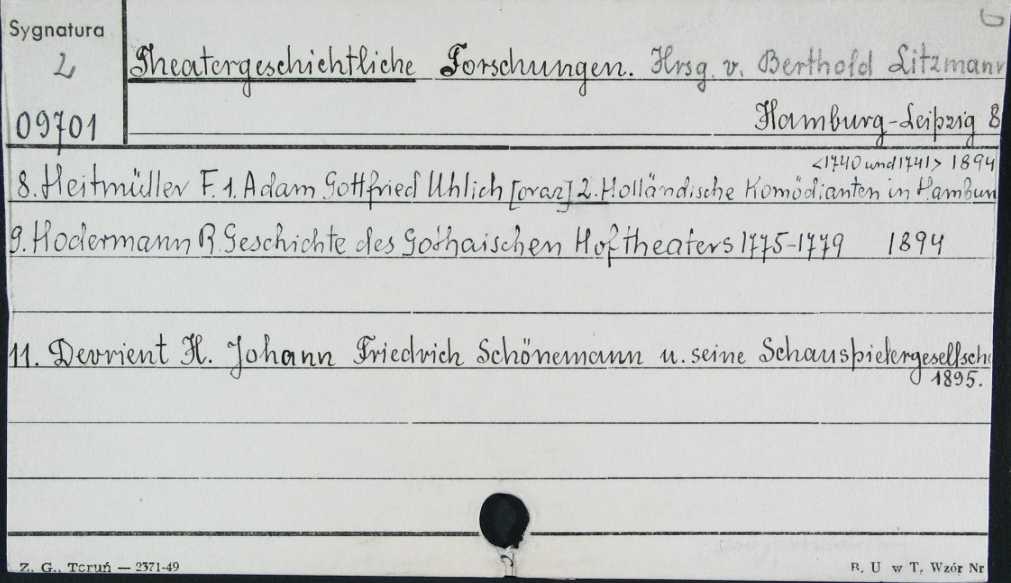 Sygnatura
2
Theatergeschichtliche Forschungen. Hrsg. v. Berthold Litzmann
09701
Hamburg-Leipzig 8
<1740 und 1741> 1894
8. Heitmüller F. 1. Adam Gottfried Uhlich [oraz] 2. Holländische Komödianten in Hambur
9. Hodermann R Geschichte des Gothaischen Hoftheaters 1775-1779 1894
11. Devrient H. Johann Friedrich Schönemann u. seine Schauspielergesellsch
1895.
Z. G., Toruń — 2371-49
B. U w T. Wzór Nr